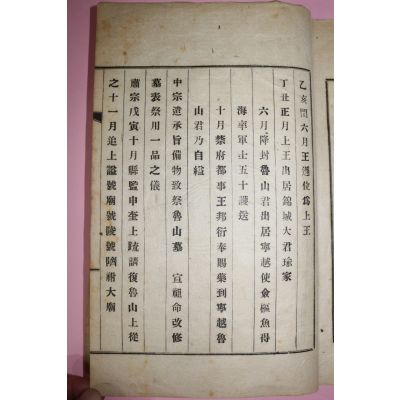 乙亥閏六月王遜位爲上王
丁丑正月上王出居錦城大君瑜家
六月降封魯山君出居寧越使僉樞魚得
海率軍士五十護送
十月禁府都事王邦衍奉賜藥到寧越魯
山君乃自縊
中宗遣承旨備物致祭魯山墓　宣祖命改修
墓表祭用一品之儀
肅宗戊寅十月縣監申奎上疏請復魯山上從
之十一月追上謚號廟號陵號隮祔大廟